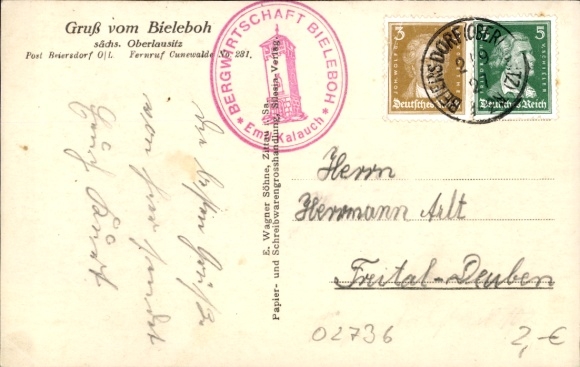 Gruß vom Bieleboh
sächs. Oberlausitz
Post Beiersdorf O/l. Fernruf Cunewalde No 231.
BERGWIRTSCHAFT BIELEBOH
* Emil Kalauch *
3
Deutsches
5
Deutsches Reich
BEIERSDORF (OBER
E. Wagner Söhne, Zittau i. Sa.
Papier- und Schreibwarengrosshandlung, Verlag.
Die besten Grüße
von
Herrn
Herrmann Arlt
Freital-Deuben
02736
2,-€